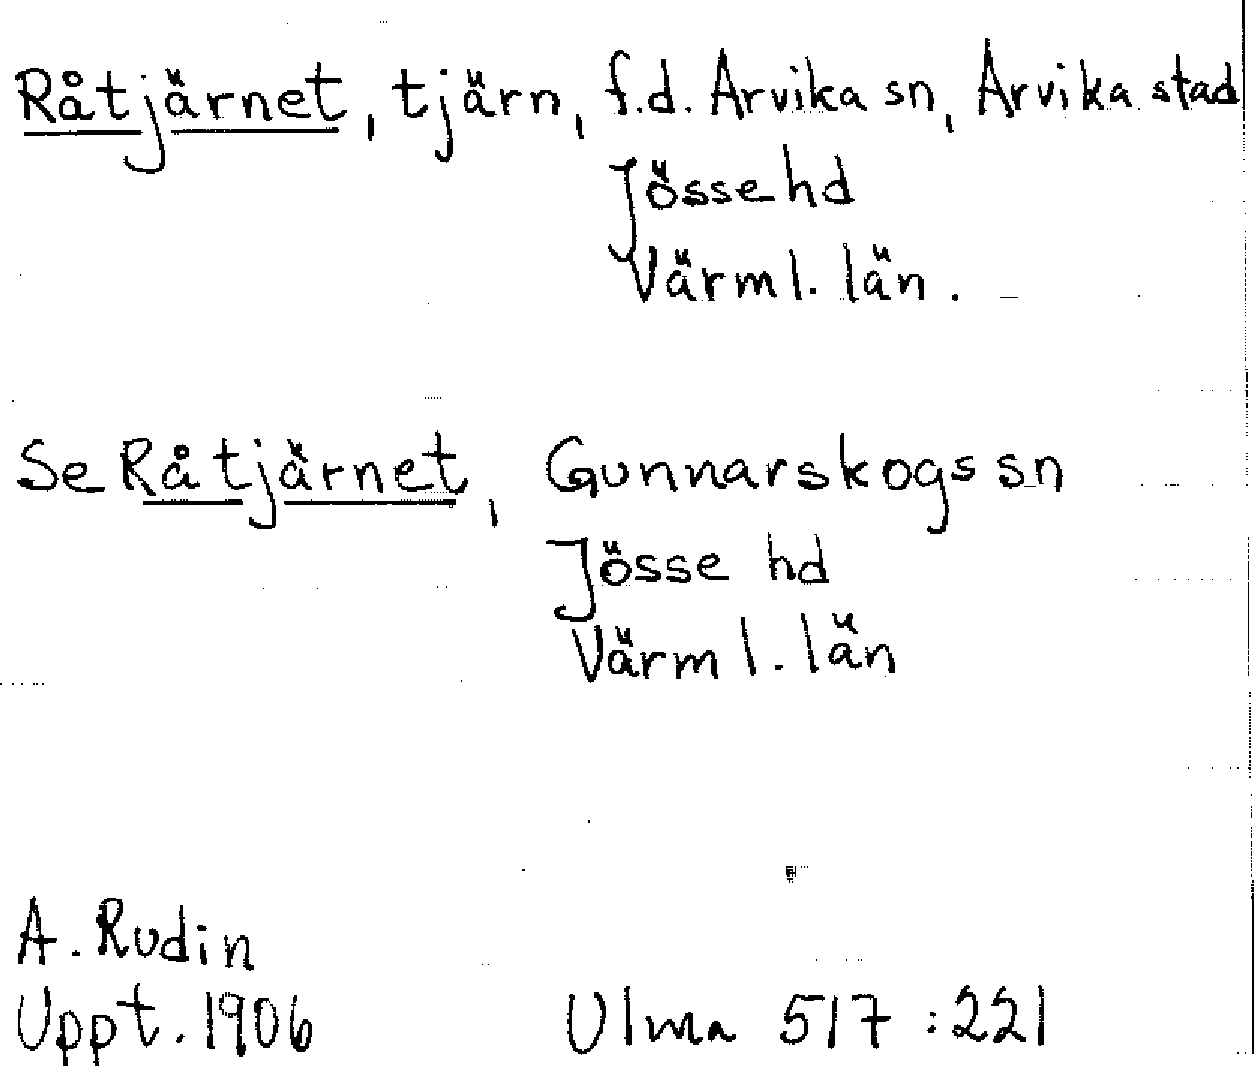 Råtjärnet, tjärn, f.d. Arvika sn, Arvika stad
Jösse hd
Värml. län.
Se Råtjärnet, Gunnarskogs sn
Jösse hd
Värml. län
A. Rudin
Uppt. 1906 Ulma 517:221